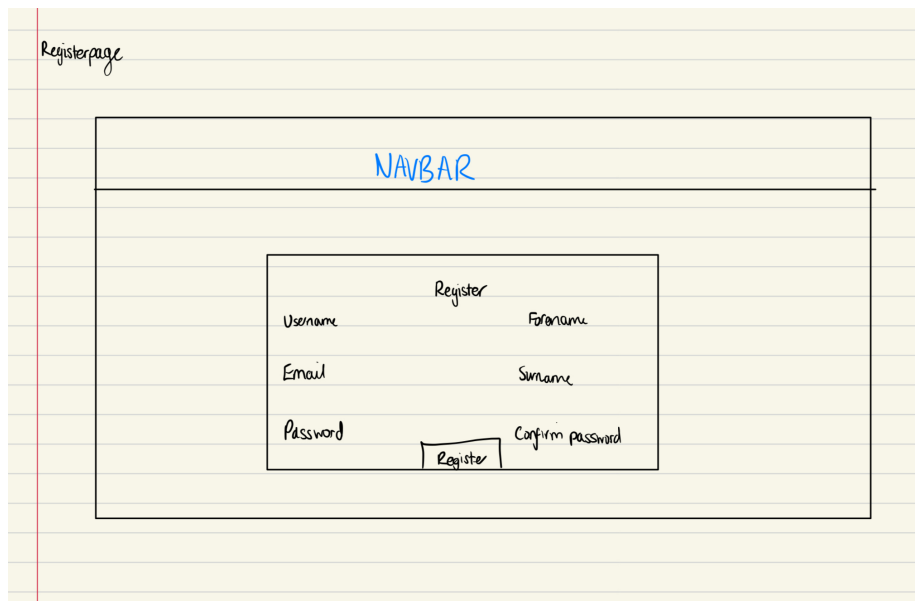 Registerpage
NAVBAR
Register
Username Forename
Email Surname
Password Confirm password
Register